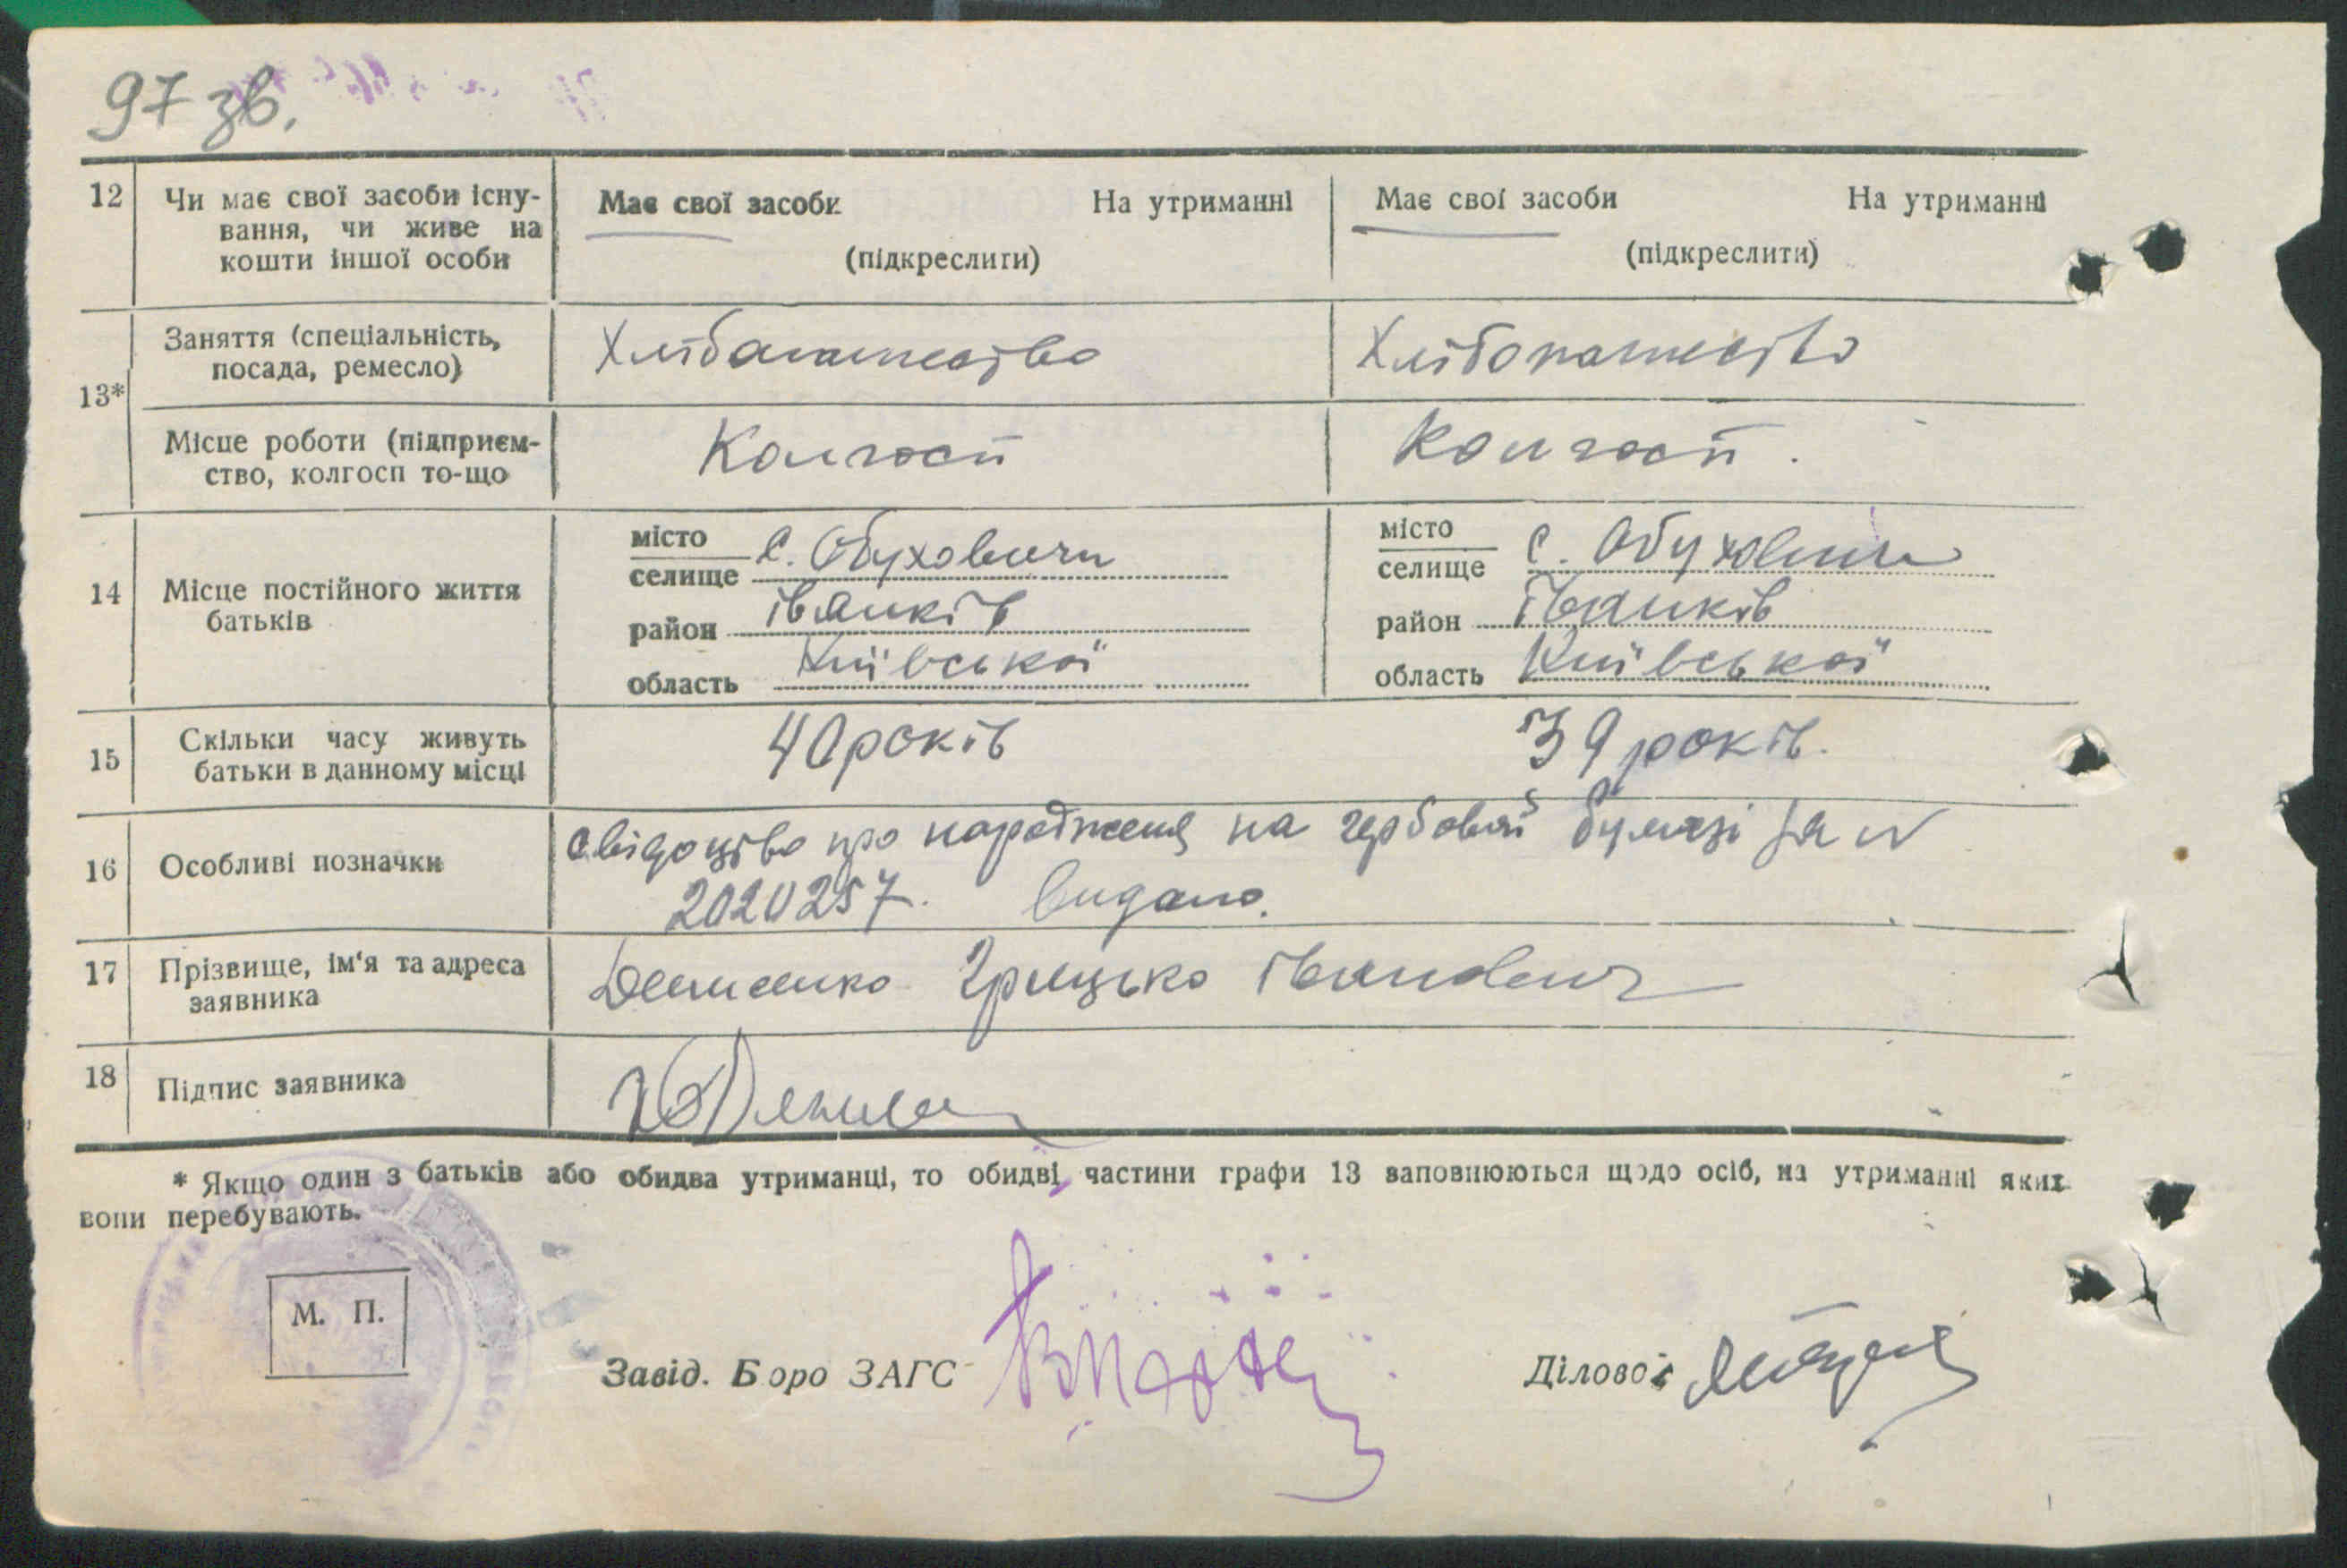 97 зв.
12 Чи має свої засоби існу- Має свої засоби На утриманні Має свої засоби На утриманні
вання, чи живе на
кошти іншої особи (підкреслити) (підкреслити)
13* Заняття (спеціальність, Хлібопашество Хлібопашество
посада, ремесло)
Місце роботи (підприєм- Колгосп Колгосп.
ство, колгосп то-що
14 Місце постійного життя місто с. Обуховичи місто с. Обуховичи
батьків селище селище
район Іванків район Іванків
область Київської область Київської
15 Скільки часу живуть 40 років 39 років.
батьки в данному місці
16 Особливі позначки свідоцтво про народження на гербовій бумазі за N
2020257. видано.
17 Прізвище, ім'я та адреса Денисенко Грицько Іванович
заявника
18 Підпис заявника
* Якщо один з батьків або обидва утриманці, то обидві частини графи 13 заповнюються щодо осіб, на утриманні яких
вони перебувають.
М. П.
Завід. Бюро ЗАГС Діловод